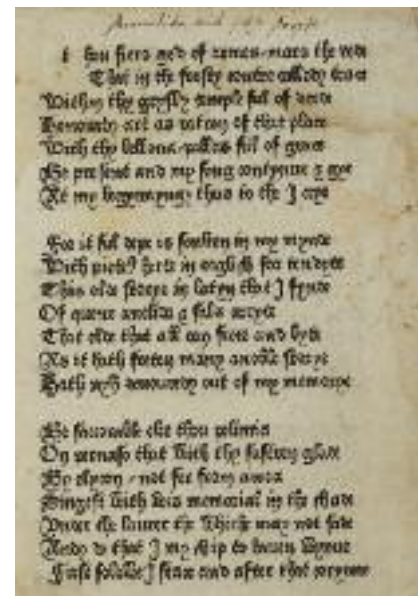 hou fiers god of armes, mars the rede
That in the frosty contre called trace
Within thy grysly temple ful of drede
Honourd art as patron of that place
With thy bellona pallas ful of grace
Be present and my song contynue & gye
At my begynnyng thus to the I crye

For it ful depe is sonken in my mynde
With pietous herte in english for tendyte
This olde storye in latyn that I fynde
Of quene anelida & fals arcyte
That elde that all can frete and byte
As it hath freten many a noble storye
Hath nygh deuourd out of my memorye

Be fauorable eke thou
On that with thy glade
By elycon / not fer from
Singest with vois memorial in the shade
Vnder the laurer the Whiche may not fade
And do that I my ship to hauen wynne
First folowe I stace and after that corynne